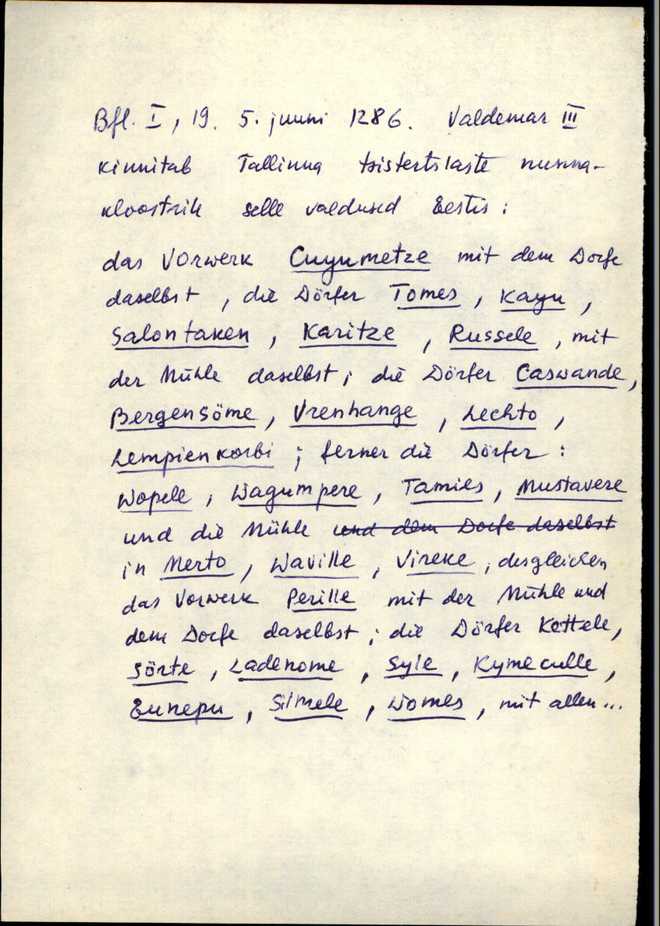 Bfl. I, 19. 5. juuni 1286. Valdemar III
kinnitab Tallinna tsistertslaste nunna-
kloostrile selle valdused Eestis:
das Vorwerk Cuyumetze mit dem Dorfe
daselbst, die Dörfer Tomes, Kayu,
Salontaken, Karitze, Russele, mit
der Mühle daselbst; die Dörfer Caswande,
Bergensöme, Vrenhange, Lechto,
Lempienkorbi; ferner die Dörfer:
Wopele, Wagumpere, Tamies, Mustavere
und die Mühle und dem Dorfe daselbst
in Merto, Waville, Vireke, desgleichen
das Vorwerk Perille mit der Mühle und
dem Dorfe daselbst; die Dörfer Kottele,
Sörte, Ladenome, Syie, Kymeculle,
Eunepu, Silmele, Womes, mit allen...